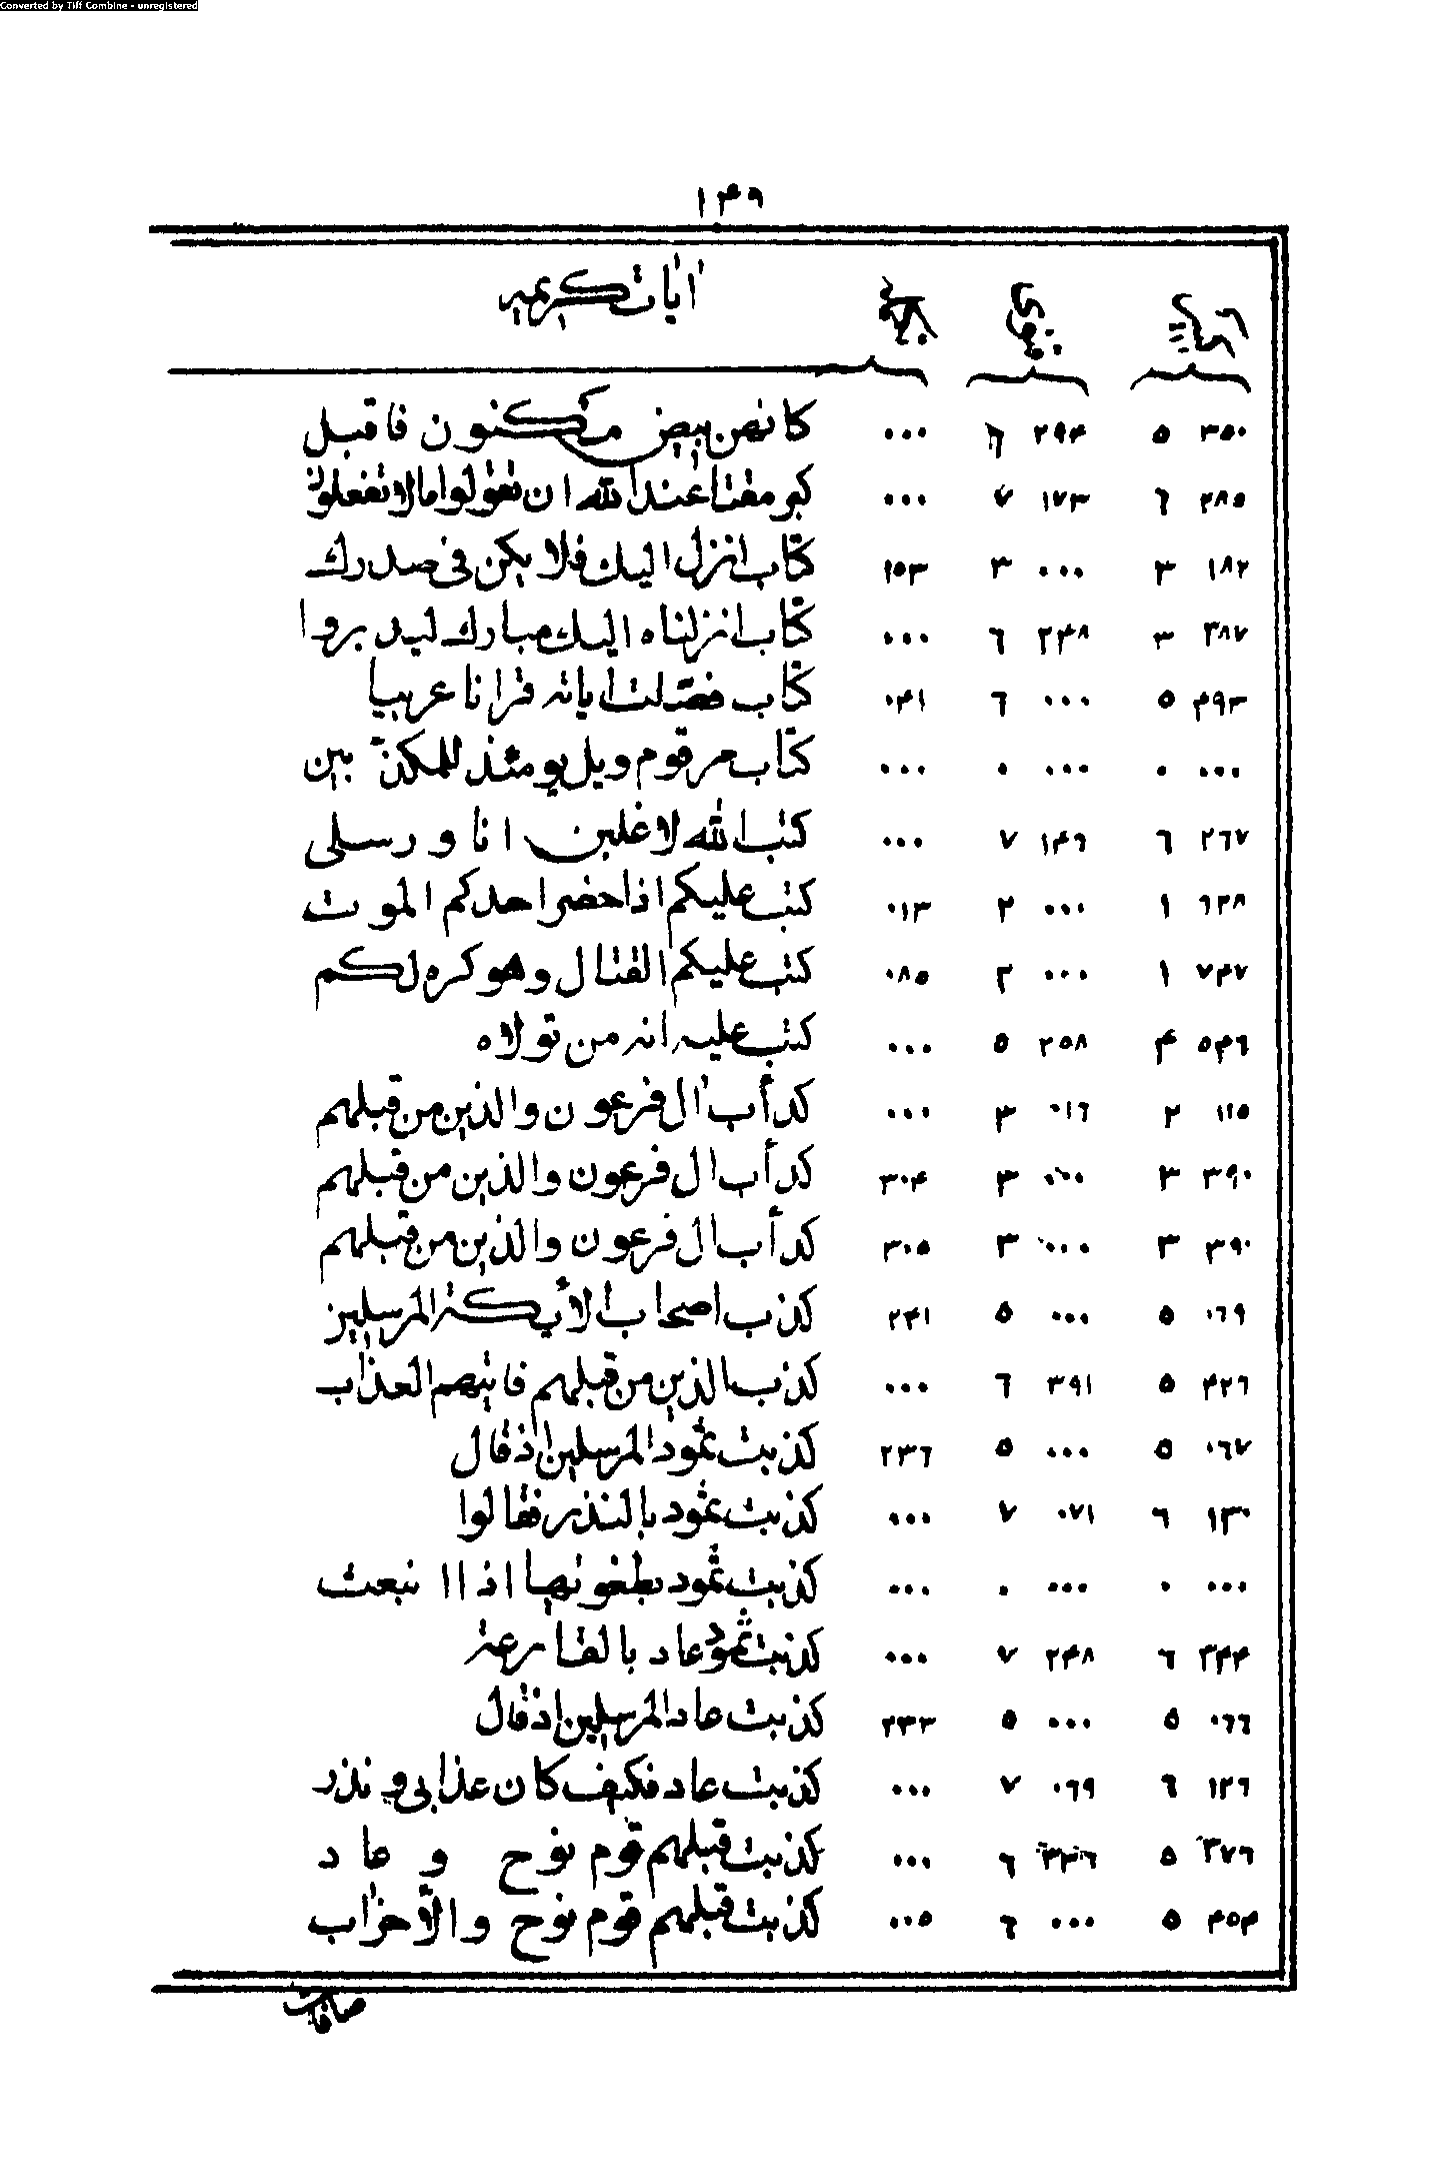 Converted by Tiff Combine - unregistered
١۴٩
اٰيات كريميه
٣٥٠ ٥ ٢٩۴ ٦ ٠٠٠ كانهن بيض مكنون فاقبل
٢٨٥ ٦ ١٧٣ ٧ ٠٠٠ كبر مقتا عند الله ان تقولوا مالا تفعلون
١٨٢ ٣ ٠٠٠ ٣ ١٥٣ كتاب انزل اليك فلا يكن فى صدرك
٣٨٧ ٣ ٢۴٨ ٦ ٠٠٠ كتاب انزلناه اليك مبارك ليدبروا
۴٩٣ ٥ ٠٠٠ ٦ ٠۴١ كتاب فصّلت اياته قرانا عربيا
٠٠٠ ٠ ٠٠٠ ٠ ٠٠٠ كتاب مرقوم ويل يومئذ للمكذّبين
٢٦٧ ٦ ١۴٦ ٧ ٠٠٠ كتب الله لاغلبن انا ورسلى
٦٢٨ ١ ٠٠٠ ٢ ٠١٣ كتب عليكم اذا حضر احدكم الموت
٧۴٧ ١ ٠٠٠ ٢ ٠٨٥ كتب عليكم القتال وهو كره لكم
٥۴٦ ۴ ٢٥٨ ٥ ٠٠٠ كتب عليه انه من تولاه
١١٥ ٢ ٠١٦ ٣ ٠٠٠ كدأب اٰل فرعون والذين من قبلهم
٣٩٠ ٣ ٠٠٠ ٣ ٣٠۴ كدأب ال فرعون والذين من قبلهم
٣٩٠ ٣ ٠٠٠ ٣ ٣٠٥ كدأب ال فرعون والذين من قبلهم
٠٦٩ ٥ ٠٠٠ ٥ ٢۴١ كذب اصحاب الأيكة المرسلين
۴٢٦ ٥ ٣٩١ ٦ ٠٠٠ كذب الذين من قبلهم فاتيهم العذاب
٠٦٧ ٥ ٠٠٠ ٥ ٢٣٦ كذبت ثمود المرسلين اذ قال
١٣٠ ٦ ٠٧١ ٧ ٠٠٠ كذبت ثمود بالنذر فقالوا
٠٠٠ ٠ ٠٠٠ ٠ ٠٠٠ كذبت ثمود بطغونها اذا انبعث
٣۴۴ ٦ ٢۴٨ ٧ ٠٠٠ كذبت ثمود وعاد بالقارعة
٠٦٦ ٥ ٠٠٠ ٥ ٢٣٣ كذبت عاد المرسلين اذ قال
١٢٦ ٦ ٠٦٩ ٧ ٠٠٠ كذبت عاد فكيف كان عذابى ونذر
٣٧٦ ٥ ٣٣٦ ٦ ٠٠٠ كذبت قبلهم قوم نوح وعاد
۴٥۴ ٥ ٠٠٠ ٦ ٠٠٥ كذبت قبلهم قوم نوح والأحزاب
صافات